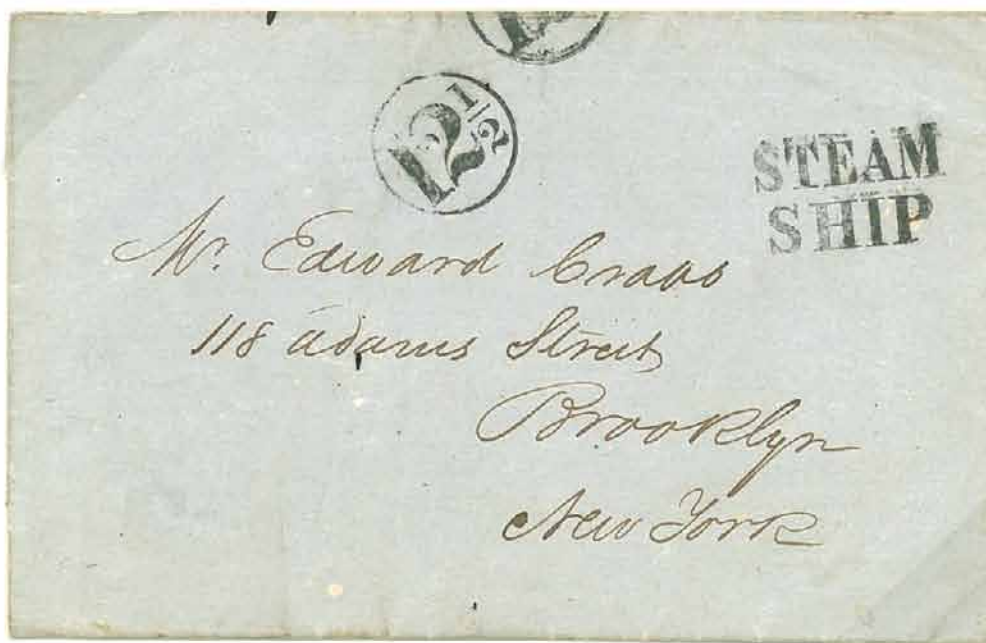 12 1/2
STEAM
SHIP
Mr. Edward
118 Adams Street
Brooklyn
New York